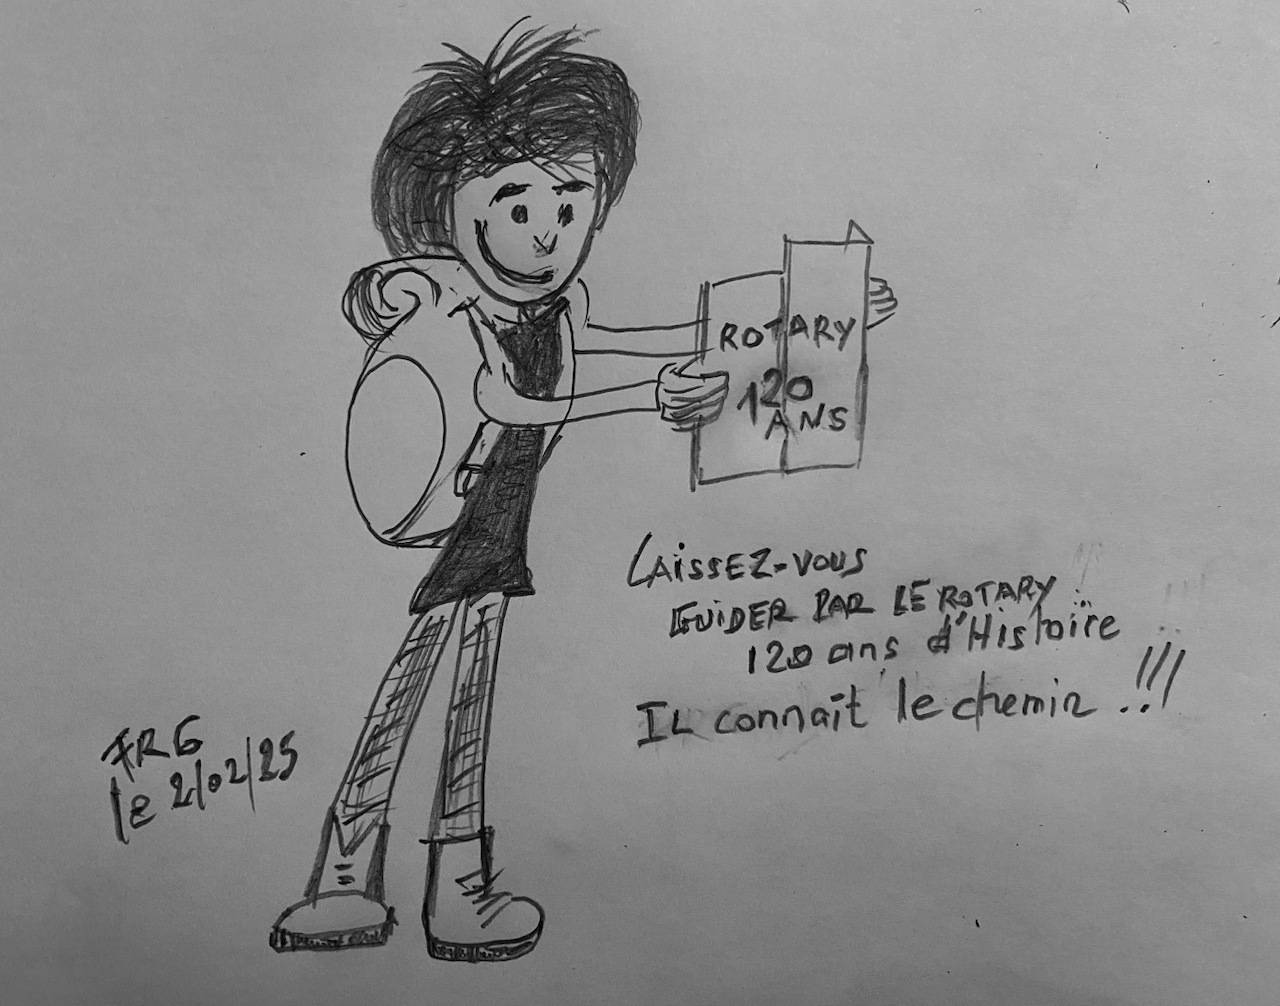 ROTARY
120
ANS
LAISSEZ-VOUS
GUIDER PAR LE ROTARY
120 ans d'Histoire
IL connaît le chemin ..!!!
FRG
le 2/02/25